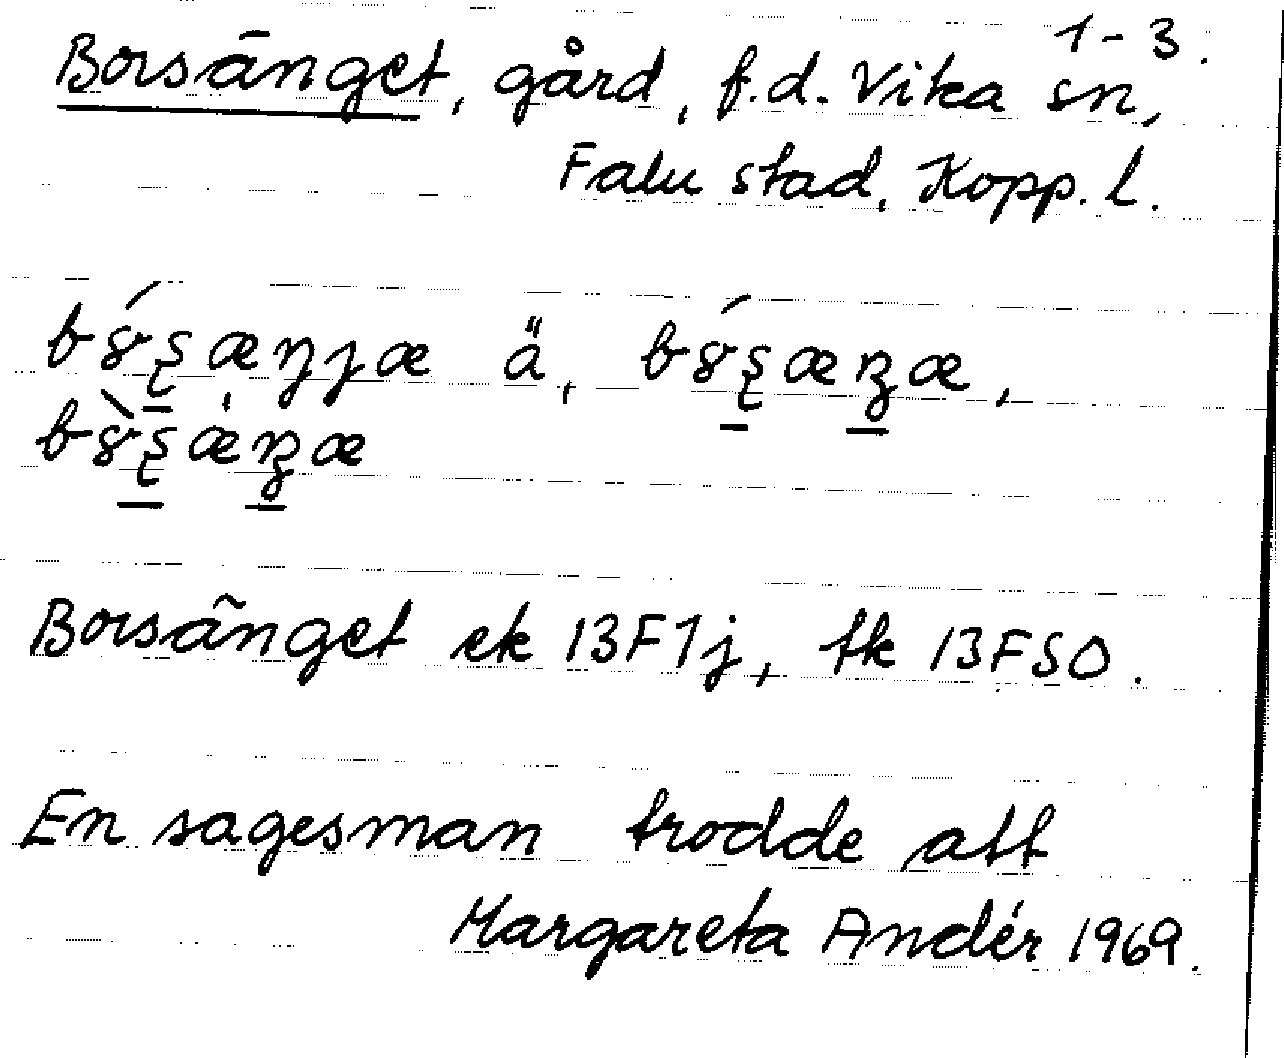 1-3.
Borsänget, gård, f.d. Vika sn,
Falu stad, Kopp. l.
ä,
Borsänget ek 13F1j, tk 13FSO.
En sagesman trodde att
Margareta Andér 1969.